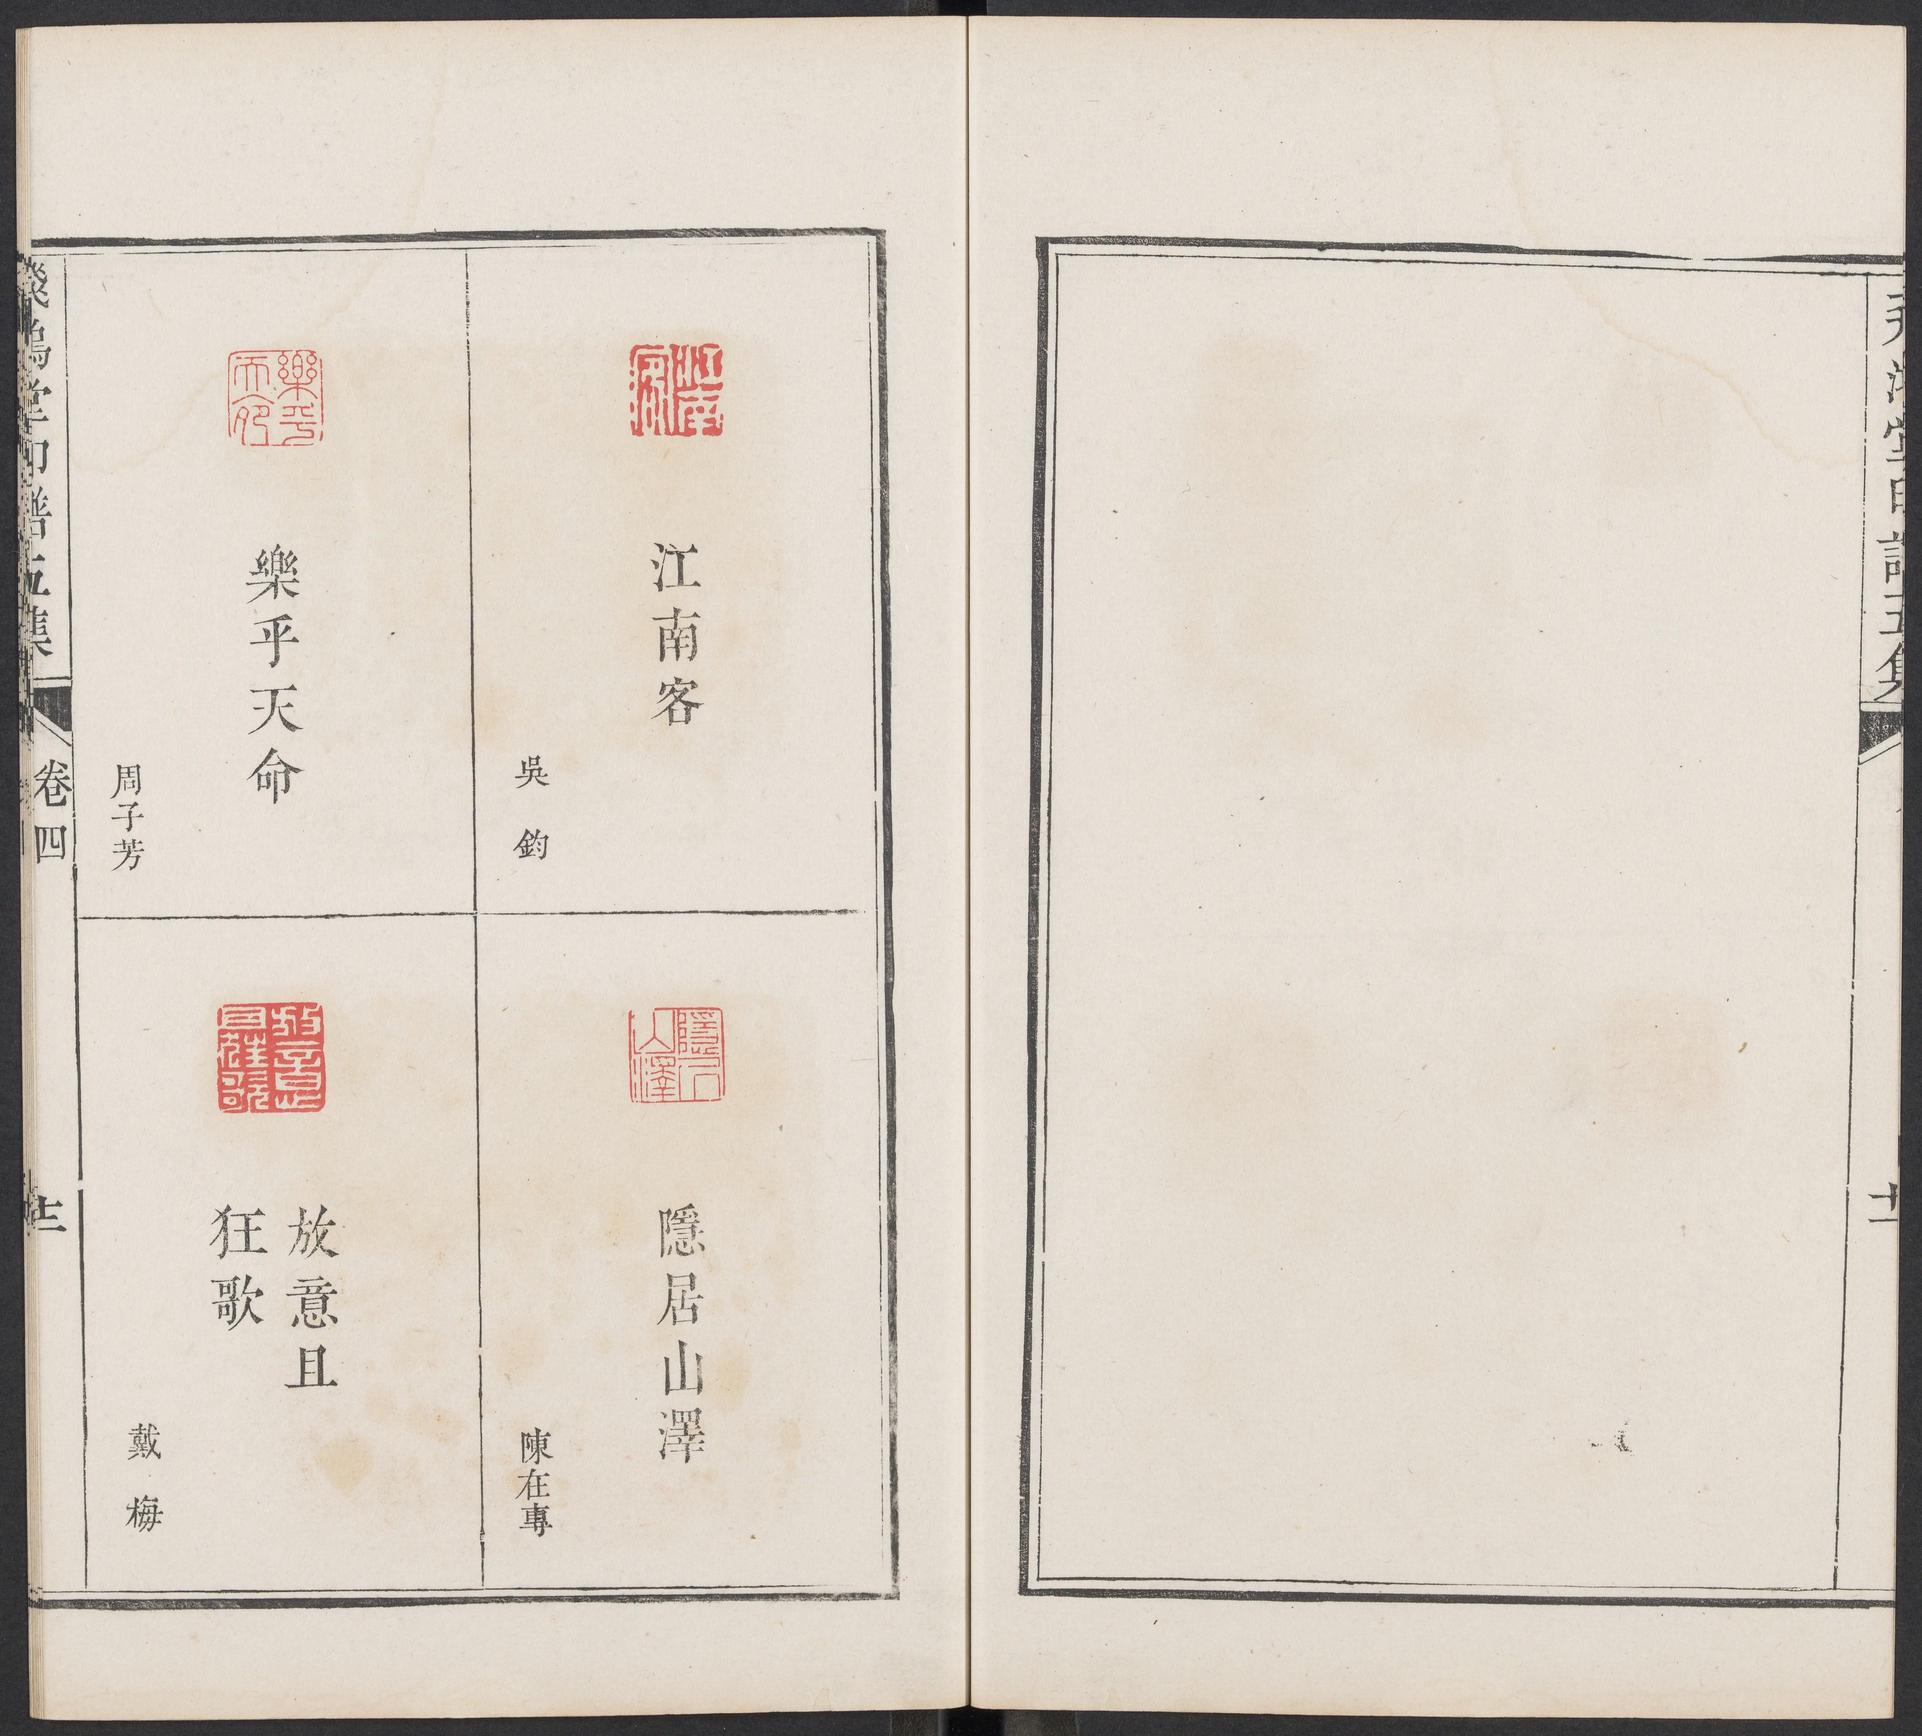 鴻堂印譜五集
十一
江南客
吳鈞
樂乎天命
周子芳
隱居山澤
陳在專
放意且
狂歌
戴梅
飛鴻堂印譜五集
卷四
十二